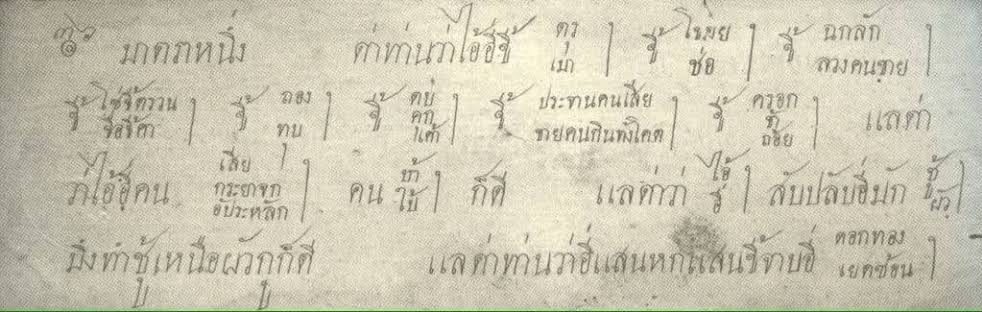 มาตราหนึ่ง ด่าท่านว่าไอ้อี่ขี้ ตรุ เมา ขี้ โขมย ช่อ ขี้ ฉกลัก ลวงคนขาย
ขี้ ใช่ขี้ครวน ชื่อขี้ค่า ขี้ ถอง ทุบ ขี้ คุก เค้า ขี้ ประทานคนเสีย ขายคนกินทังโคต ขี้ ครอก ข้า ถ้อย แลด่า
ว่าไอ้อี่คน เสีย กระยาจก อัประหลัก คน บ้า ใบ้ ก็ดี แลด่าว่า ไอ้ อี่ สับปลับอี่ปาก ชู้ ผัว
มึงทำชู้เหนือผัวกูก็ดี แลด่าท่านว่าอี่แสนหกแสนขี้จาบอี่ ดอกทอง เยดซ้อน